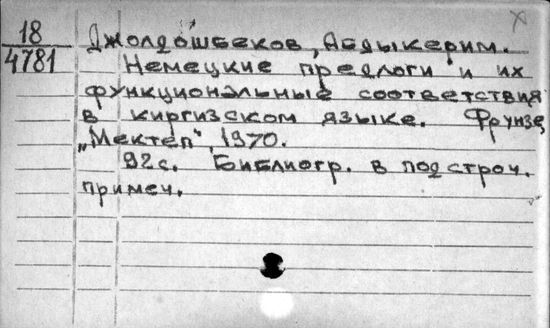 18
4781
Джолдошбеков, Абдыкерим.
Немецкие предлоги и их
функциональные соответствия
в киргизском языке. Фрунзе,
„Мектеп", 1970.
92с. Библиогр. в подстроч.
примеч.